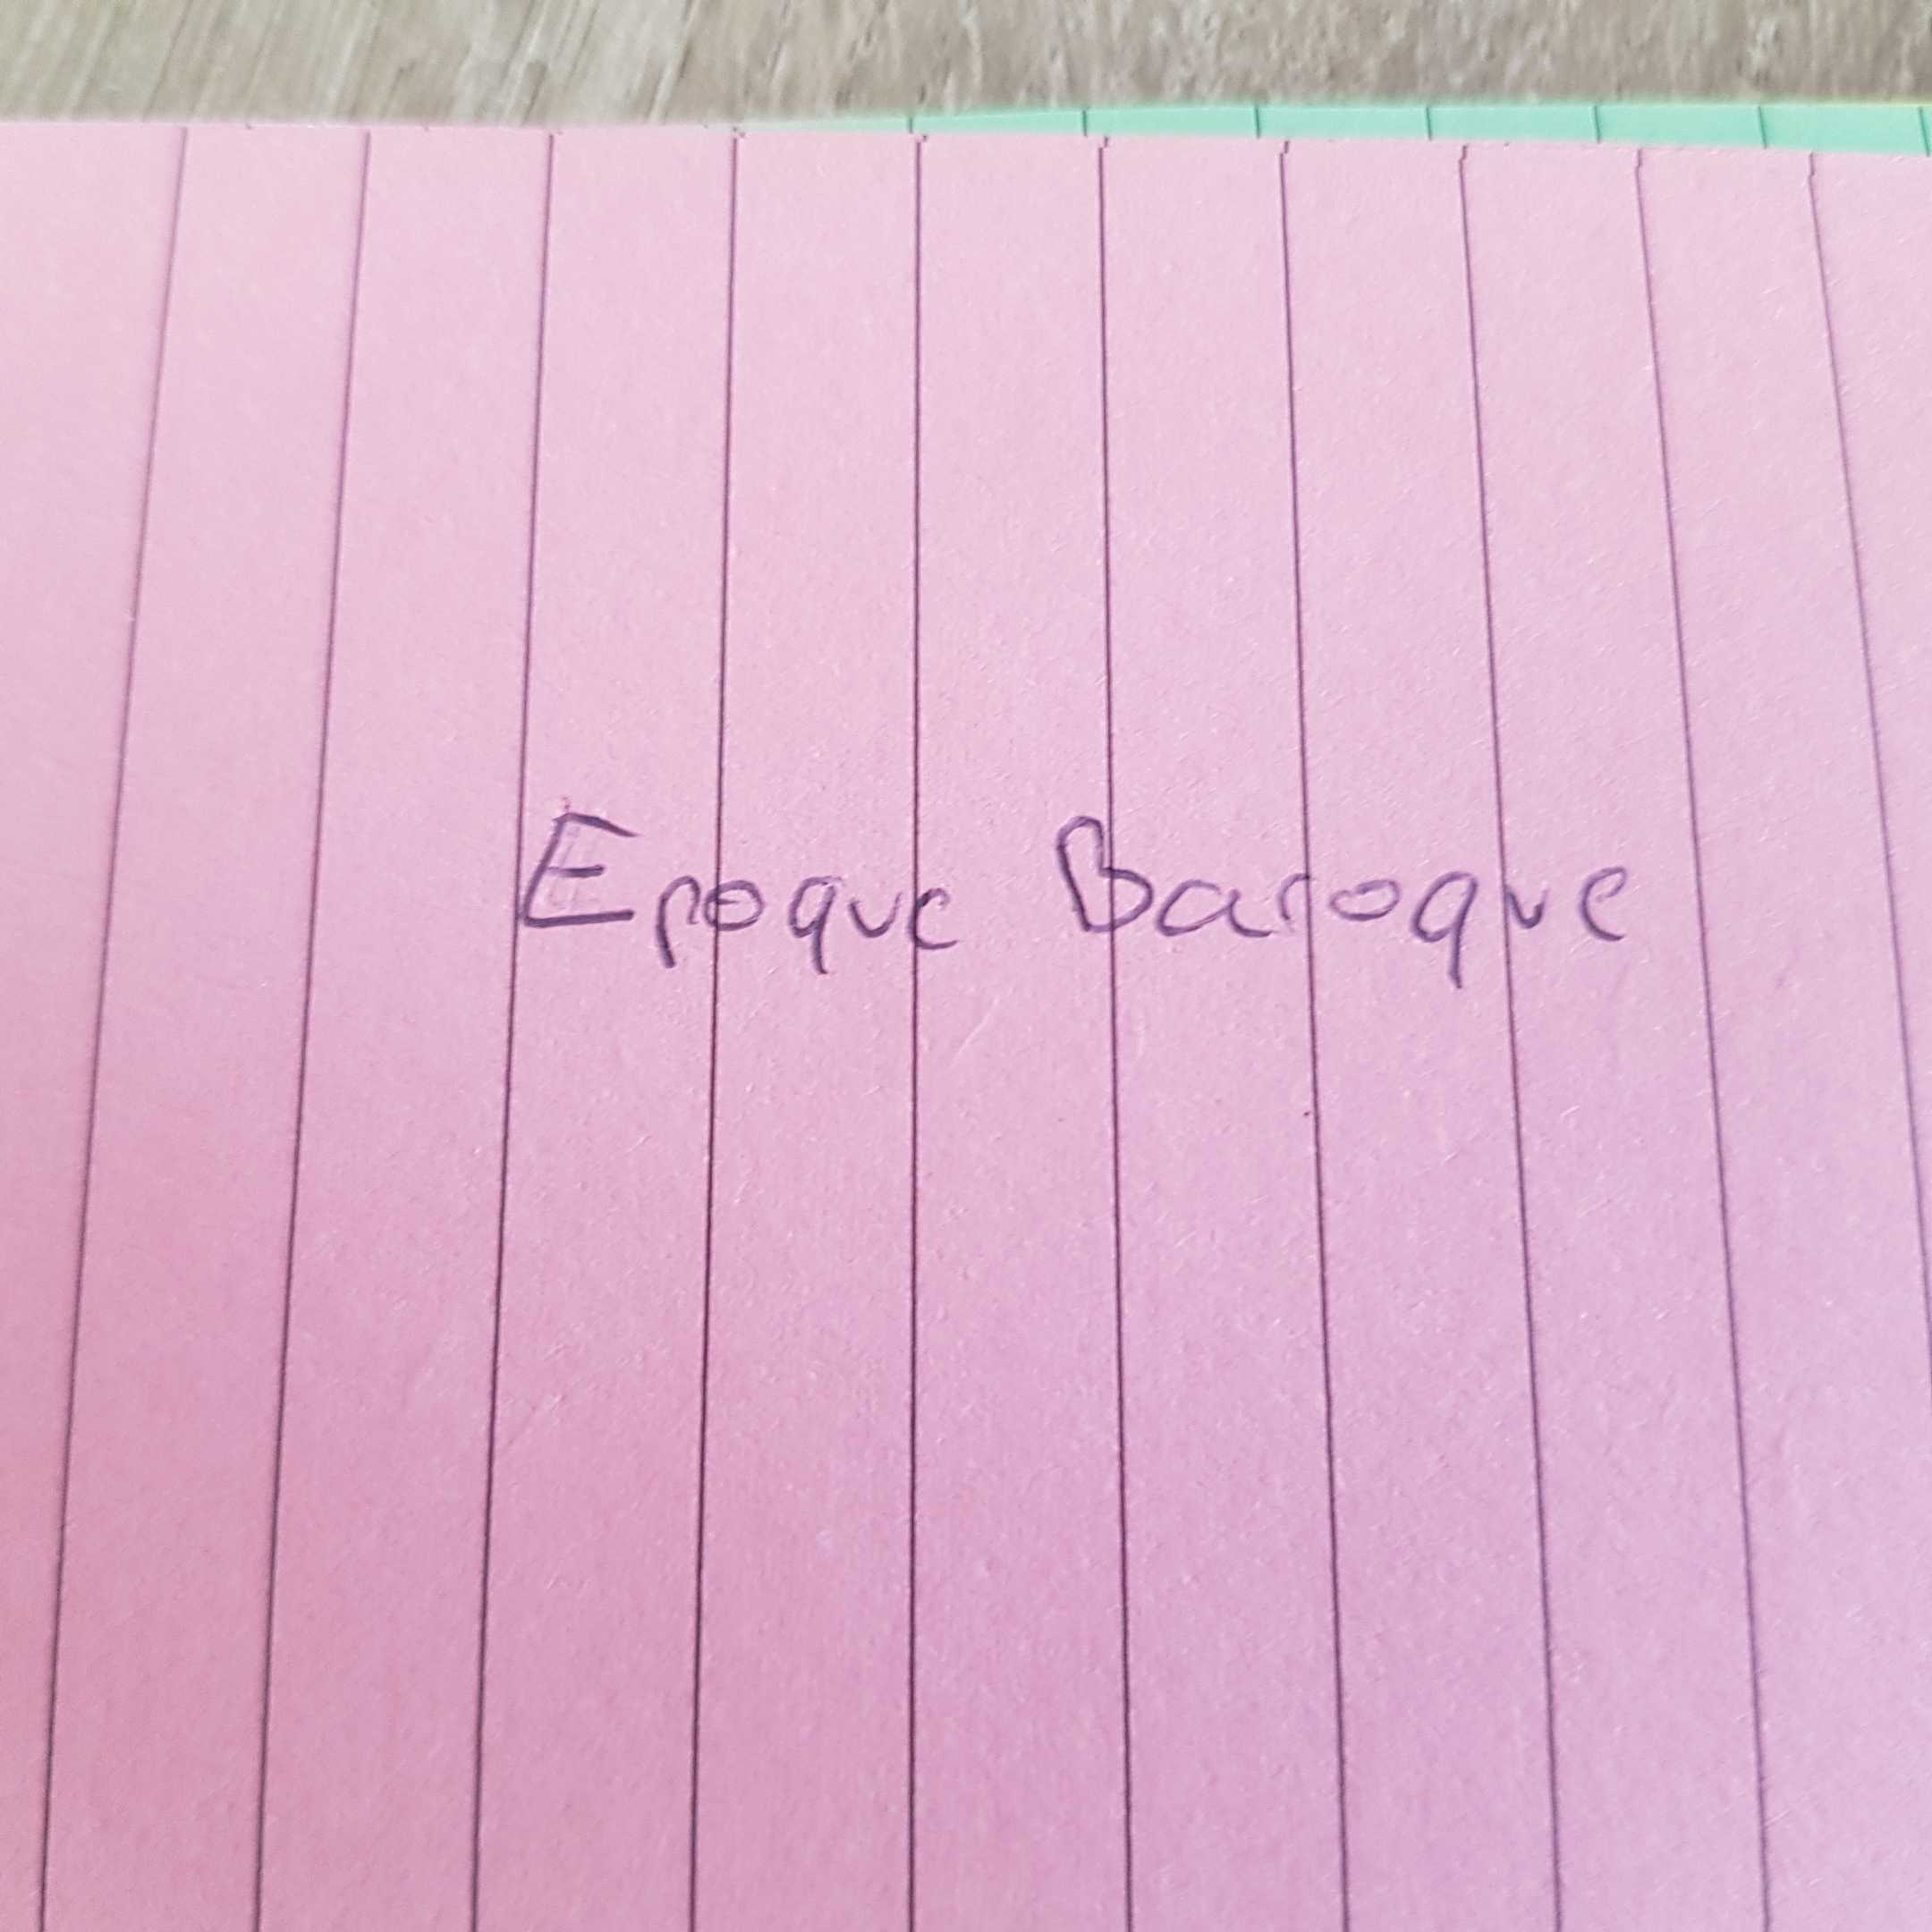 Epoque Baroque